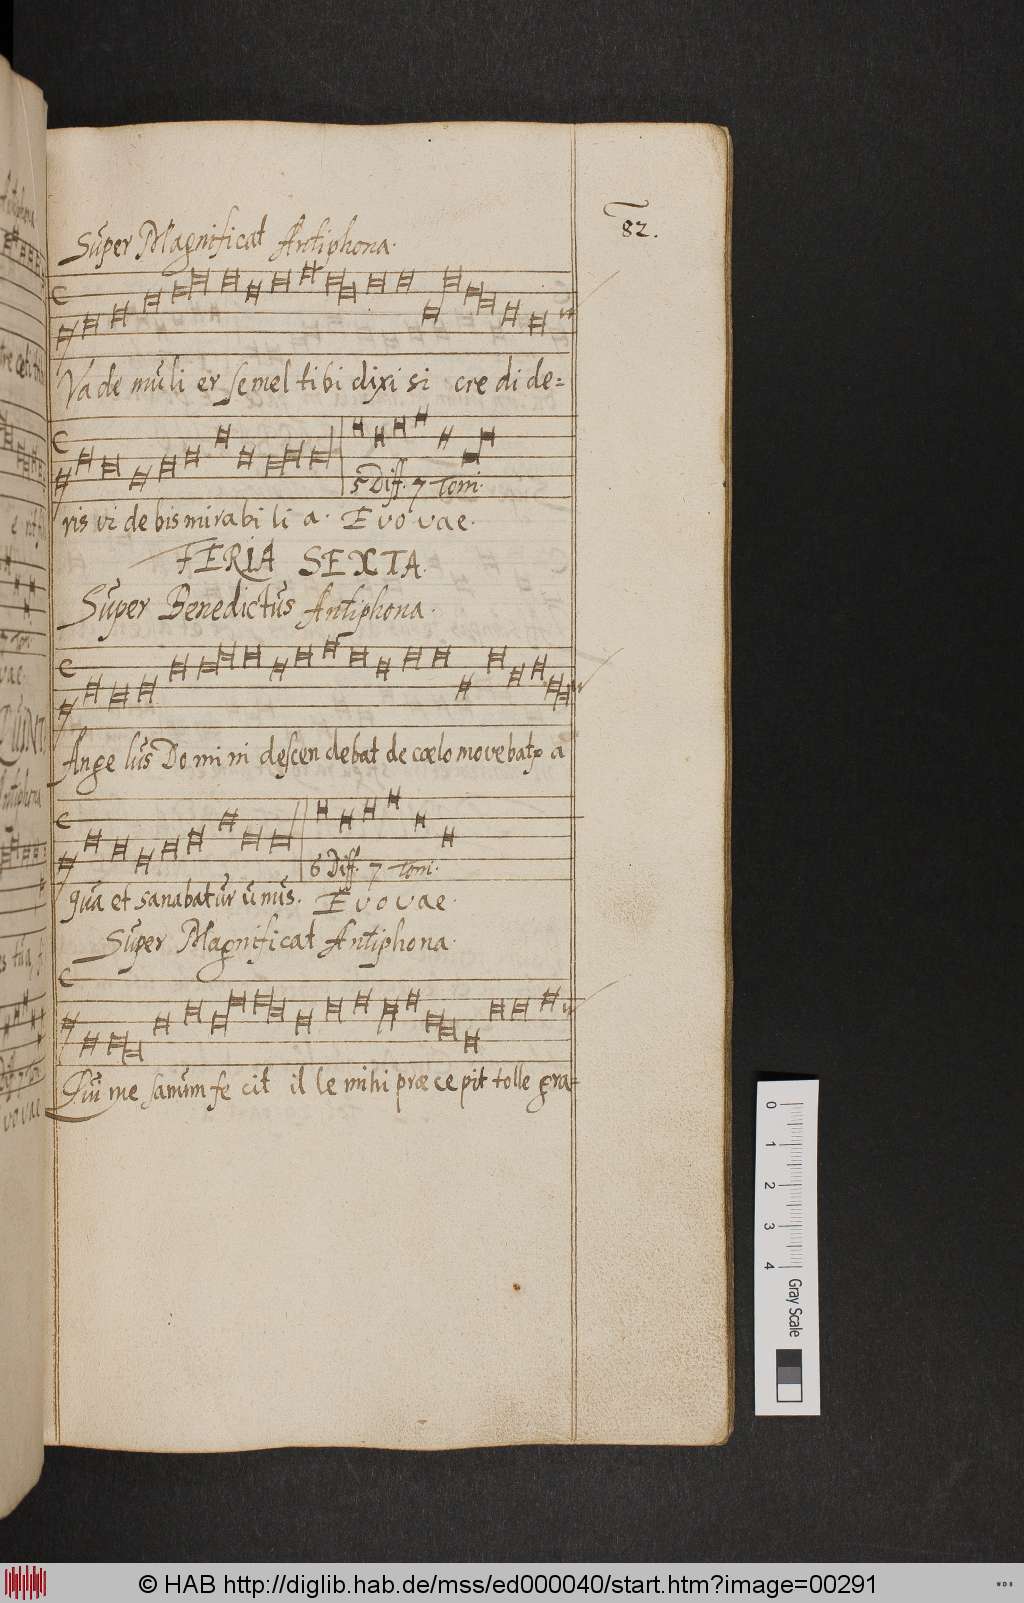 82.
Super Magnificat Antiphona.
Va de mu li er semel ti bi dixi si cre di de=
5 Diff. 7 Toni.
ris vi de bis mirabi li a. Evovae.
FERIA SEXTA.
Super Benedictus Antiphona.
Ange lus Do mi ni descen debat de coelo movebatr a
6 Diff. 7 Toni.
qua et sanabatur unus. Evovae.
Super Magnificat Antiphona.
Qui me sanum fe cit il le mihi præ ce pit tolle gra=
0 1 2 3 4 Gray Scale
© HAB http://diglib.hab.de/mss/ed000040/start.htm?image=00291